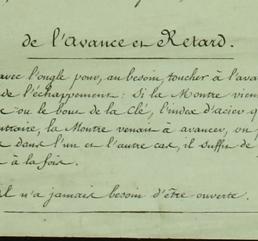 de l'Avance et Retard.
avec l'ongle pour, au besoin, toucher à l'ava
de l'échappement: Si la Montre vien
ou le bout de la Clé, l'index d'acier q
ontraire, la Montre venant à avancer, on p
dans l'un et l'autre cas, il suffit de
à la fois.
il n'a jamais besoin d'être ouverte.